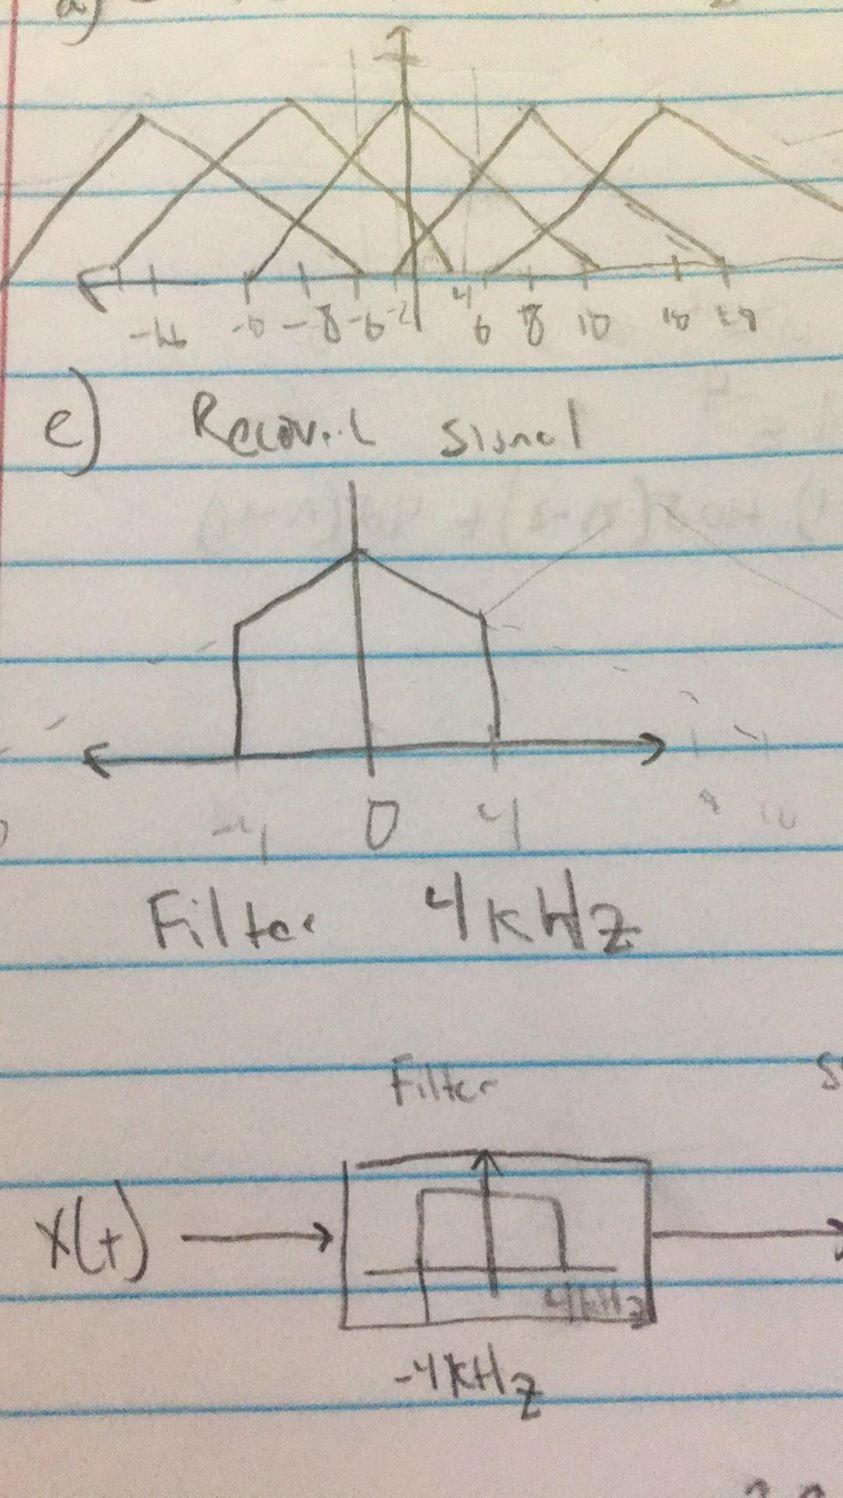 a)
-16 -10 -8 -6 -2 4 6 8 10 16 18
e) Recover signal
-4 0 4
Filter 4kHz
Filter
x(t)
4kHz
-4kHz